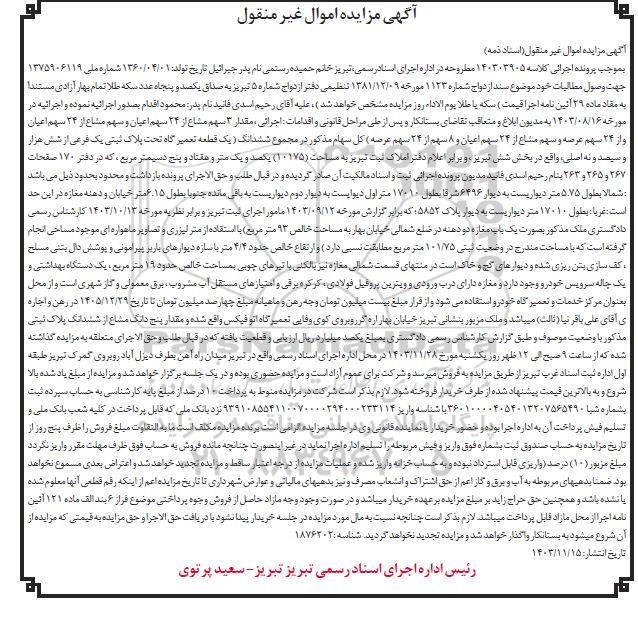 آگهی مزایده اموال غیر منقول
آگهی مزایده اموال غیر منقول(اسناد ذمه)
بموجب پرونده اجرائی کلاسه ۱۴۰۳۰۳۹۰۵ مطروحه در اداره اجرای اسناد رسمی تبریز خانم حمیده رستمی نام پدر جبرائیل تاریخ تولد: ۱۳۶۰/۰۴/۰۱ شماره ملی ۱۳۷۵۹۰۶۱۱۹
جهت وصول مطالبات خود موضوع سند ازدواج شماره ۱۱۲۳ مورخه ۱۳۸۱/۱۲/۰۹ تنظیمی دفتر ازدواج شماره ۵ تبریز به صداق یکصد و پنجاه عدد سکه طلا تمام بهار آزادی مستنداً
به مفاد ماده ۲۹ آئین نامه اجرا قیمت ) سکه یا طلا یوم الاداء روز مزایده مشخص خواهد شد )، علیه آقای رحیم اسدی فائید نام پدر: محمود اقدام بصدور اجرائیه نموده و اجرائیه در
مورخه ۱۴۰۳/۰۸/۱۶ به مدیون ابلاغ و متعاقب تقاضای بستانکار و پس از طی مراحل قانونی و اقدامات اجرائی، مقدار ۳ سهم مشاع از ۲۴ سهم اعیان و سهم مشاع از ۲۴ سهم
و از ۲۴ سهم عرصه و سهم مشاع از ۲۴ سهم اعیان و ۸ سهم از ۲۴ سهم عرصه ) کل سهام مذکور در مجموع ششدانگ ( یک قطعه تعمیر گاه تحت پلاک ثبتی یک فرعی از شش هزار
و سیصد و نه اصلی، واقع در بخش شش تبریز، و برابر اعلام دفتر املاک ثبت تبریز به مساحت (۱۰۱۷۵) یکصد و یک متر و هفتاد و پنج دسیمتر مربع، که در دفتر ۱۷۰ صفحات
۲۶۷ و ۲۶۵ و ۲۶۳ بنام رحیم اسدی فائید مدیون پرونده اجرائی ثبت و اسناد مالکیت آن صادر گردیده و در قبال طلب و حق الاجرای پرونده بازداشت و محدود بحدود ذیل می باشد
: شمالا بطول ۵.۷۵ متر دیواریست به دیوار ۶۴۹۶ شرقا بطول ۱۷۰۱۰ متر اول دیواریست به دیوار دوم دیواریست به باقی مانده جنوبا بطول ۶.۱۵ متر خیابان و دهنه مغازه در این حد
است: غربا: بطول ۱۷۰۱۰ متر دیواریست به دیوار پلاک ۵۸۵۲؛ که برابر گزارش مورخه ۱۴۰۳/۰۹/۱۲ مامور اجرای ثبت تبریز و برابر نظریه مورخه ۱۴۰۳/۱۰/۱۳ کارشناس رسمی
دادگستری ملک مذکور بصورت یک باب مغازه دو دهنه در ضلع شمالی خیابان بهار به مساحت خالص ۹۳ متر مربع) با استفاده از متر لیزری و تصاویر ماهواره ای موجود مساحی انجام
گرفته است که با مساحت مندرج در وضعیت ثبتی ۱۰۱/۷۵ متر مربع مطابقت نسبی دارد ) و ارتفاع خالص حدود ۴/۴ متر با سازه دیوارهای باربر پیرامونی و پوشش دال بتنی مسلح
، کف سازی بتن ریزی شده و دیوارهای گچ و خاک است در منتهای قسمت شمالی مغازه نیز بالکنی با تیرهای چوبی بمساحت خالص حدود ۱۹ متر مربع، یک دستگاه بهداشتی و
یک چاله سرویس خودرو وجود دارد و مغازه دارای درب ورودی و ویترین پروفیل فولادی، کرکره برقی و امتیازهای مستقل آب مشروب، برق معمولی و گاز شهری است و از محل
بعنوان مرکز خدمات و تعمیر گاه خودرو استفاده می شود و از قرار مبلغ بیست میلیون تومان وجه رهن و ماهیانه مبلغ چهارصد میلیون تومان تا تاریخ ۱۴۰۵/۱۲/۲۹ در رهن و اجاره
ی آقای علی باقر نیا (ثالث) میباشد و ملک مزبور بنشانی تبریز خیابان بهار اره گر روبروی کوی وفایی تعمیرگاه اتوفیکس واقع شده و مقدار پنج دانگ مشاع از ششدانگ پلاک ثبتی
مذکور با وضعیت موصوف و طبق گزارش کارشناس رسمی دادگستری بمبلغ یکصد میلیارد ریال ارزیابی و قطعیت یافته که در قبال طلب و حق الاجرای متعلقه به مزایده گذاشته
شده که از ساعت ۹ صبح الی ۱۲ ظهر روز یکشنبه مورخ ۱۴۰۳/۱۱/۲۸ در محل اداره اجرای اسناد رسمی واقع در تبریز میدان راه آهن بطرف دیزل آباد روبروی گمرک تبریز طبقه
اول اداره ثبت اسناد غرب تبریز از طریق مزایده به فروش میرسد و شرکت برای عموم آزاد است و مزایده حضوری بوده و در یک جلسه برگزار خواهد شد و مزایده از مبلغ یاد شده بالا
شروع و به بالاترین قیمت پیشنهاد شده از طرف خریدار فروخته شود. لازم بذکر است شرکت در مزایده منوط به پرداخت ۱۰ درصد از مبلغ پایه کارشناسی به حساب سپرده ثبت
بشماره شبا ۳۶۰۱۰۰۰۰۴۰۵۴۰۱۳۲۰۷۵۶۵۴۹۰ با شناسه واریز ۹۳۹۱۰۸۵۵۴۱۱۰۰۷۰۰۰۰۲۹۴۰۰۰۲۳۳۱۱۴ نزد بانک ملی که قابل پرداخت در کلیه شعب بانک ملی و
تسلیم فیش پرداخت آن به اداره اجرا بوده و حضور خریدار یا نماینده قانونی وی در جلسه مزایده الزامی است برنده مزایده مکلف است ما به التفاوت مبلغ فروش را ظرف پنج روز از
تاریخ مزایده به حساب صندوق ثبت بشماره فوق واریز و فیش مربوطه را تسلیم اداره اجرا نماید در غیر اینصورت چنانچه مانده فروش به حساب فوق ظرف مهلت مقرر واریز نگردد
مبلغ مزبور (۱۰) درصد (واریزی قابل استرداد نبوده و به حساب خزانه واریز شده و عملیات مزایده از درجه اعتبار ساقط و مزایده تجدید خواهد شد و اعتراض بعدی مسموع نخواهد
بود. ضمنا بدهیهای مربوطه به آب و برق و گاز اعم از حق اشتراک و انشعاب مصرف و نیز بدهیهای مالیاتی و عوارض شهرداری تا تاریخ مزایده اعم از اینکه رقم قطعی آنها معلوم شده
یا نشده باشد و همچنین حق حراج زاید بر مبلغ مزایده بر عهده خریدار میباشد و در صورت وجود وجه مازاد حاصل از فروش وجوه پرداختی موضوع فراز ۶ بند الف ماده ۱۲۱ آئین
نامه اجرا از محل مازاد قابل پرداخت میباشد. لازم بذکر است چنانچه نسبت به مال مورد مزایده در جلسه خریدار پیدا نشود با دریافت حق الاجرا و حق مزایده به قیمتی که مزایده از
آن شروع میشود به بستانکار واگذار خواهد شد و مزایده تجدید نخواهد گردید. شناسه: ۱۸۷۶۲۰۲
تاریخ انتشار: ۱۴۰۳/۱۱/۱۵
رئیس اداره اجرای اسناد رسمی تبریز تبریز - سعید پرتوی